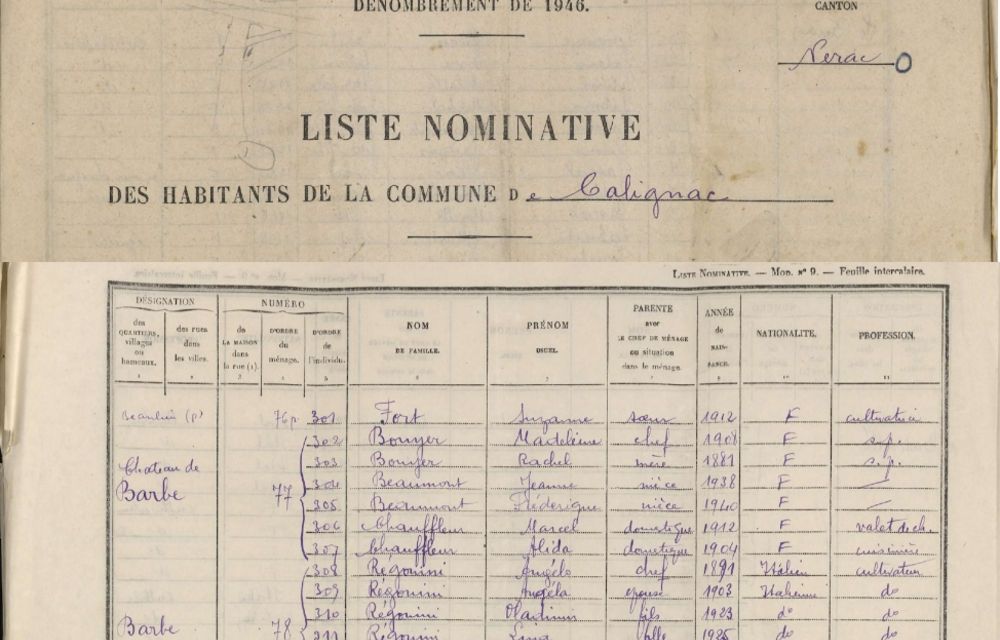 DÉNOMBREMENT DE 1946.
CANTON
Nerac
LISTE NOMINATIVE
DES HABITANTS DE LA COMMUNE De Calignac
LISTE NOMINATIVE. — MOD. N° 9. — Feuille intercalaire.
DÉSIGNATION NUMÉRO NOM DE FAMILLE. PRÉNOM USUEL. PARENTÉ avec LE CHEF DE MÉNAGE ou situation dans le ménage. ANNÉE de NAISSANCE. NATIONALITÉ. PROFESSION.
des QUARTIERS, villages ou hameaux. des rues dans les villes. de LA MAISON dans la rue (1). D'ORDRE du ménage. D'ORDRE de l'individu.
Beaulieu (p) 76 p. 301 Fort Suzanne sœur 1912 F
302 Bouyer Madeleine chef 1901 F s.p.
303 Bouyer Rachel mère 1881 F s.p.
Chateau de Barbe 77 304 Beaumont Jeanne nièce 1938 F
305 Beaumont Fréderique nièce 1940 F
306 Chauffleur Marcel domestique 1912 F valet de ch.
307 Chauffleur Alida domestique 1904 F cuisinière
308 Régouini Angélo chef 1891 Italien cultivateur
309 Régouini Angéla épouse 1903 Italienne do
310 Régouini fils 1923 do do
Barbe 78 311 Régouini fille 1925 do do